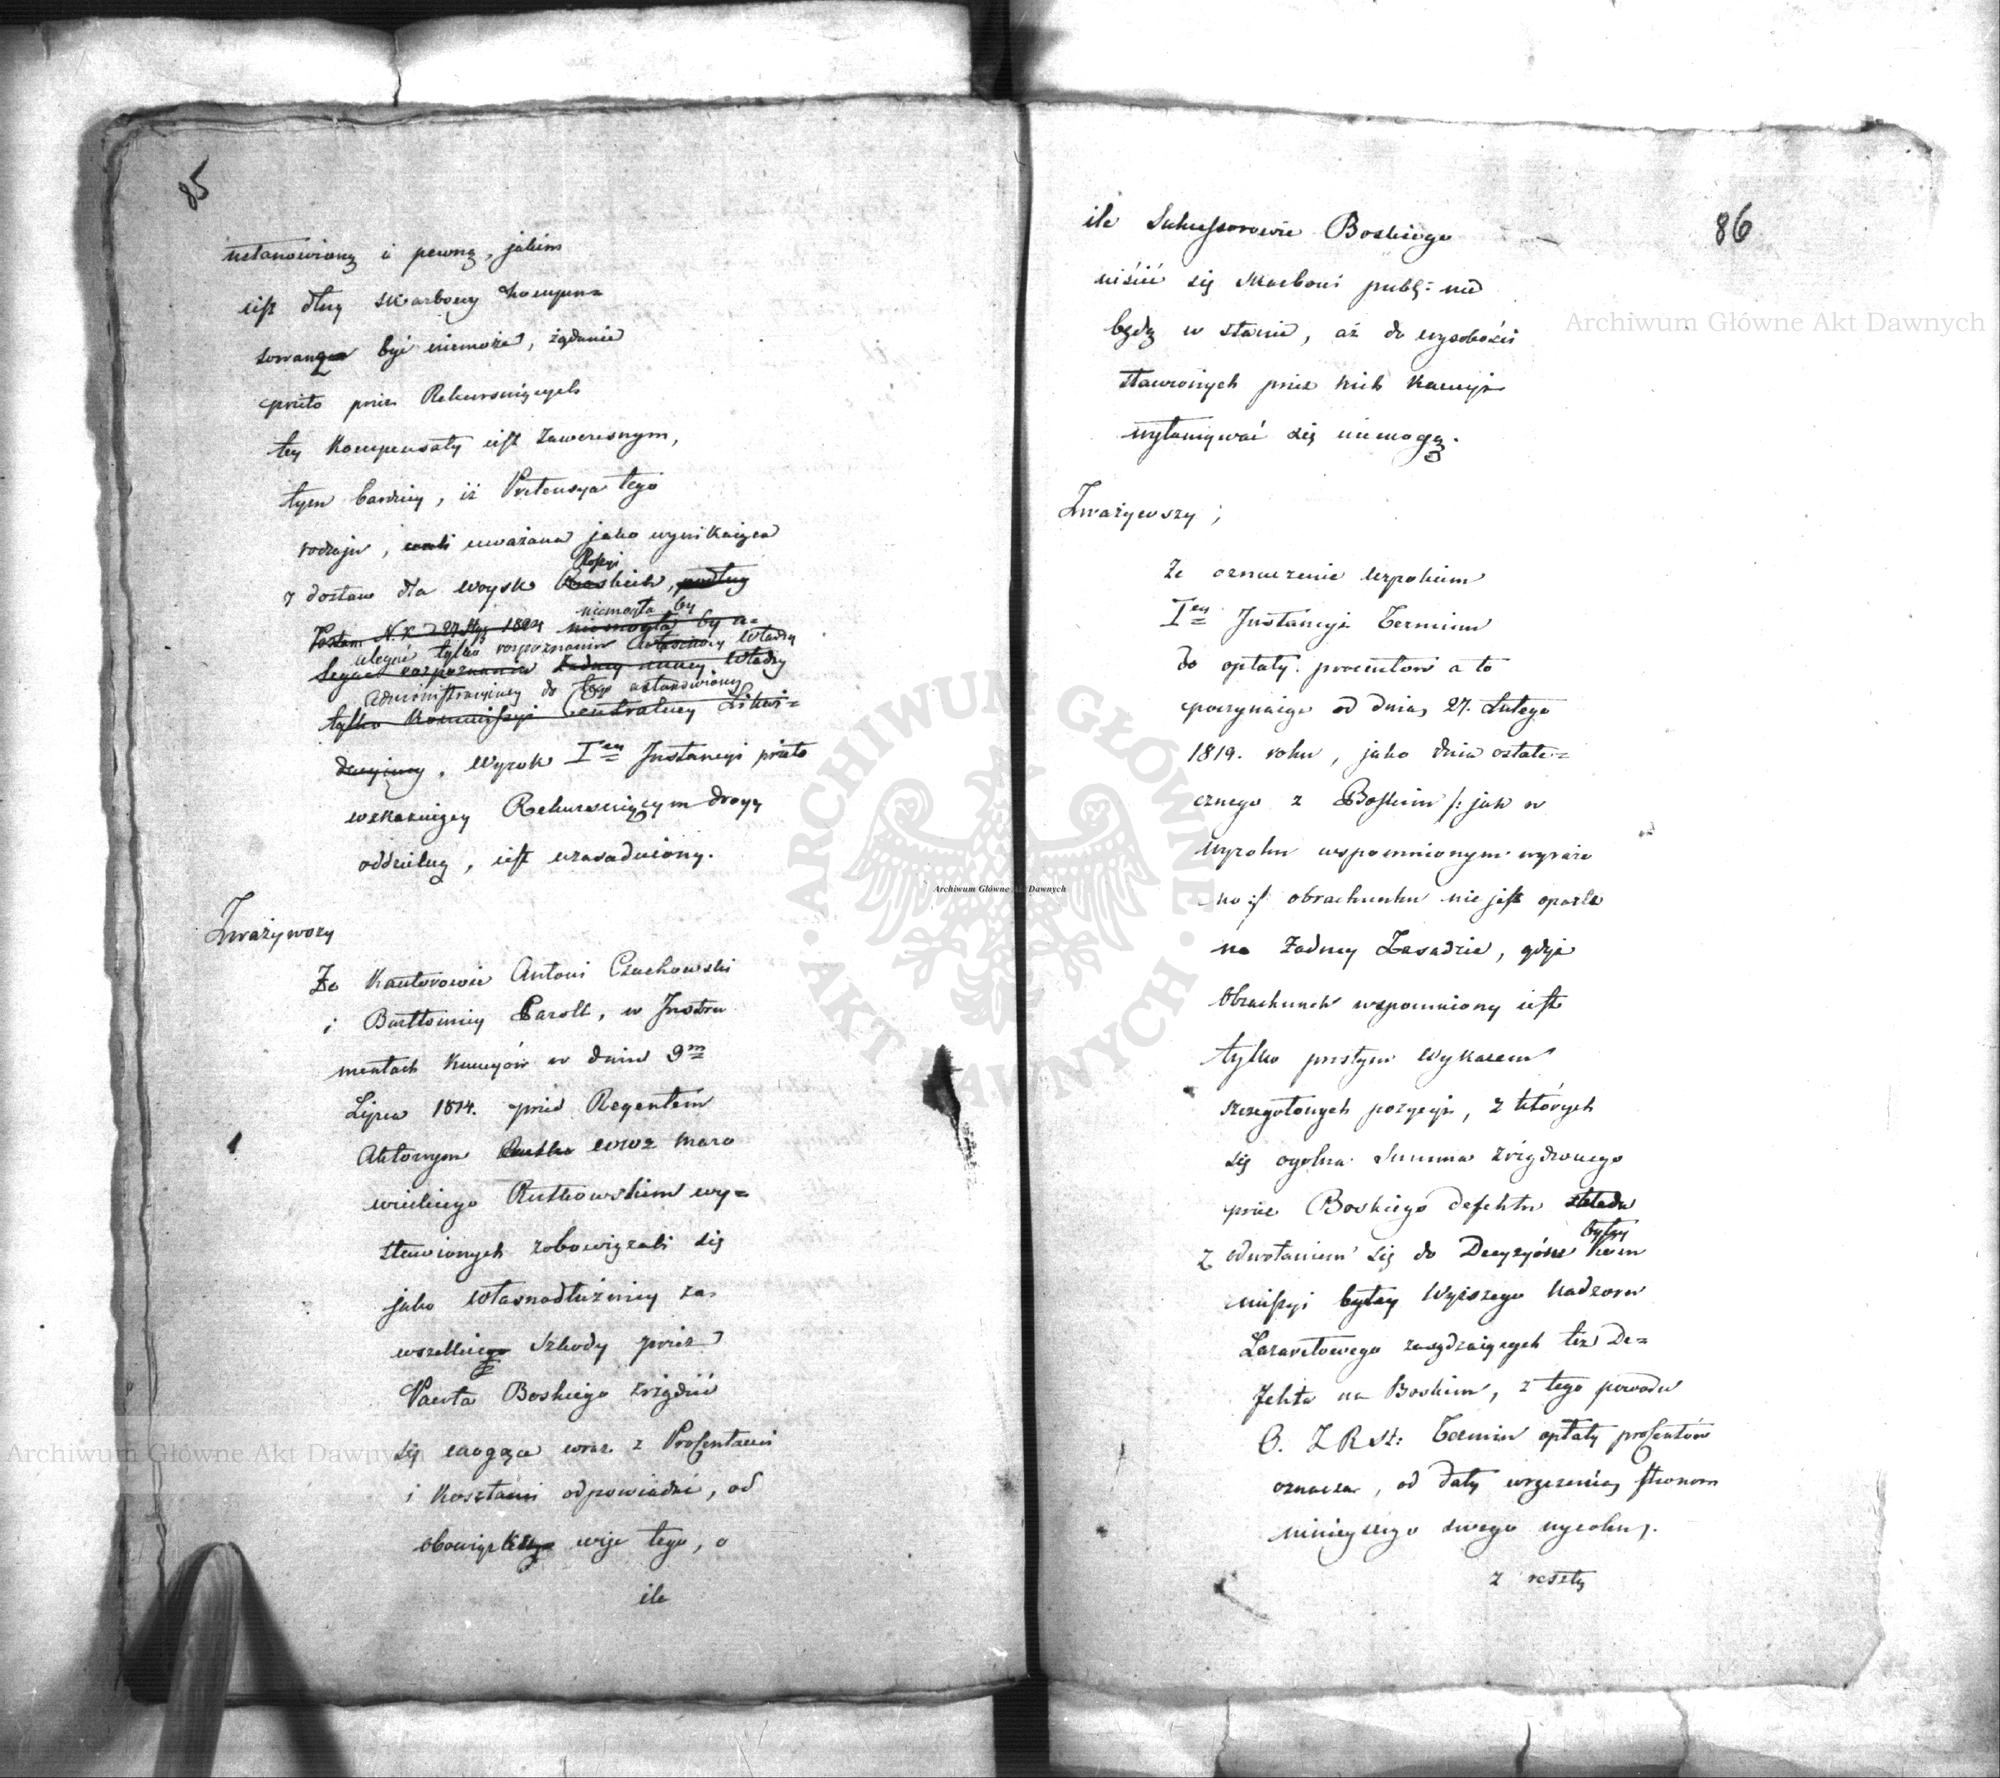 85
ustanowioną i pewną, jakim
iest dług skarbowy kompen=
sowaną być niemoże, żądanie
przeto przez Rekursuiących
tey Kompensaty iest zawczesnym,
tym bardziey, iż Pretensya tego
rodzaju, uważana jako wynikaiąca
z dostaw dla woysk Rossyi
niemogła by
uledz tylko rozpoznaniu Władzy
Administracyiney do tego ustanowioney
Wyrok I ey Instancyi przeto
wskazuiący Rekursuiącym drogę
oddzielną, iest uzasadniony.
Zważywszy
Że Kautorowie Antoni Czachowski
i Bartłomiey Caroll, w Instru
mentach Kaucyów w dniu 9 m
Lipca 1814. przed Regentem
Aktowym wraz Maco
wieckiego Rutkowskim wy=
stawionych zobowiązali się
jako własnodłużnicy za
wszelkie szkody przez
Pawła Boskiego zrządzić
się mogące wraz z Procentami
i Kosztami odpowiadać, od
obowiązku więc tego, o
ile
86
ile Sukcessorowie Boskiego
uiścić się Skarbowi publ: nie
będą w stanie, aż do wysokości
stawionych przez nich Kaucyi
wyłamywać się niemogą.
Zważywszy;
Że oznaczenie wyrokiem
I ey Instancyi Terminu
do opłaty procentów a to
poczynaiąc od dnia 27. Lutego
1819. roku, jako dnia ostate=
cznego z Boskim /: jak w
wyroku wspomnionym wyrażo
no :/ obrachunku nie jest oparte
na żadney Zasadzie, gdyż
Obrachunek wspomniony iest
tylko prostym Wykazem
szczegółowych pozycyi, z których
się ogólna Summa zrządzonego
przez Boskiego defektu składa
z odwołaniem się do Decyzyów byłey Kom
missyi Wyższego Nadzoru
Lazaretowego zasądzaiących też De=
fekta na Boskim, z tego powodu
O. Z R St: Termin opłaty procentów
oznacza, od daty wręczenia stronom
ninieyszego swego wyroku.
z reszty
Archiwum Główne Akt Dawnych
Archiwum Główne Akt Dawnych
Archiwum Główne Akt Dawnych
ARCHIWUM GŁÓWNE AKT DAWNYCH